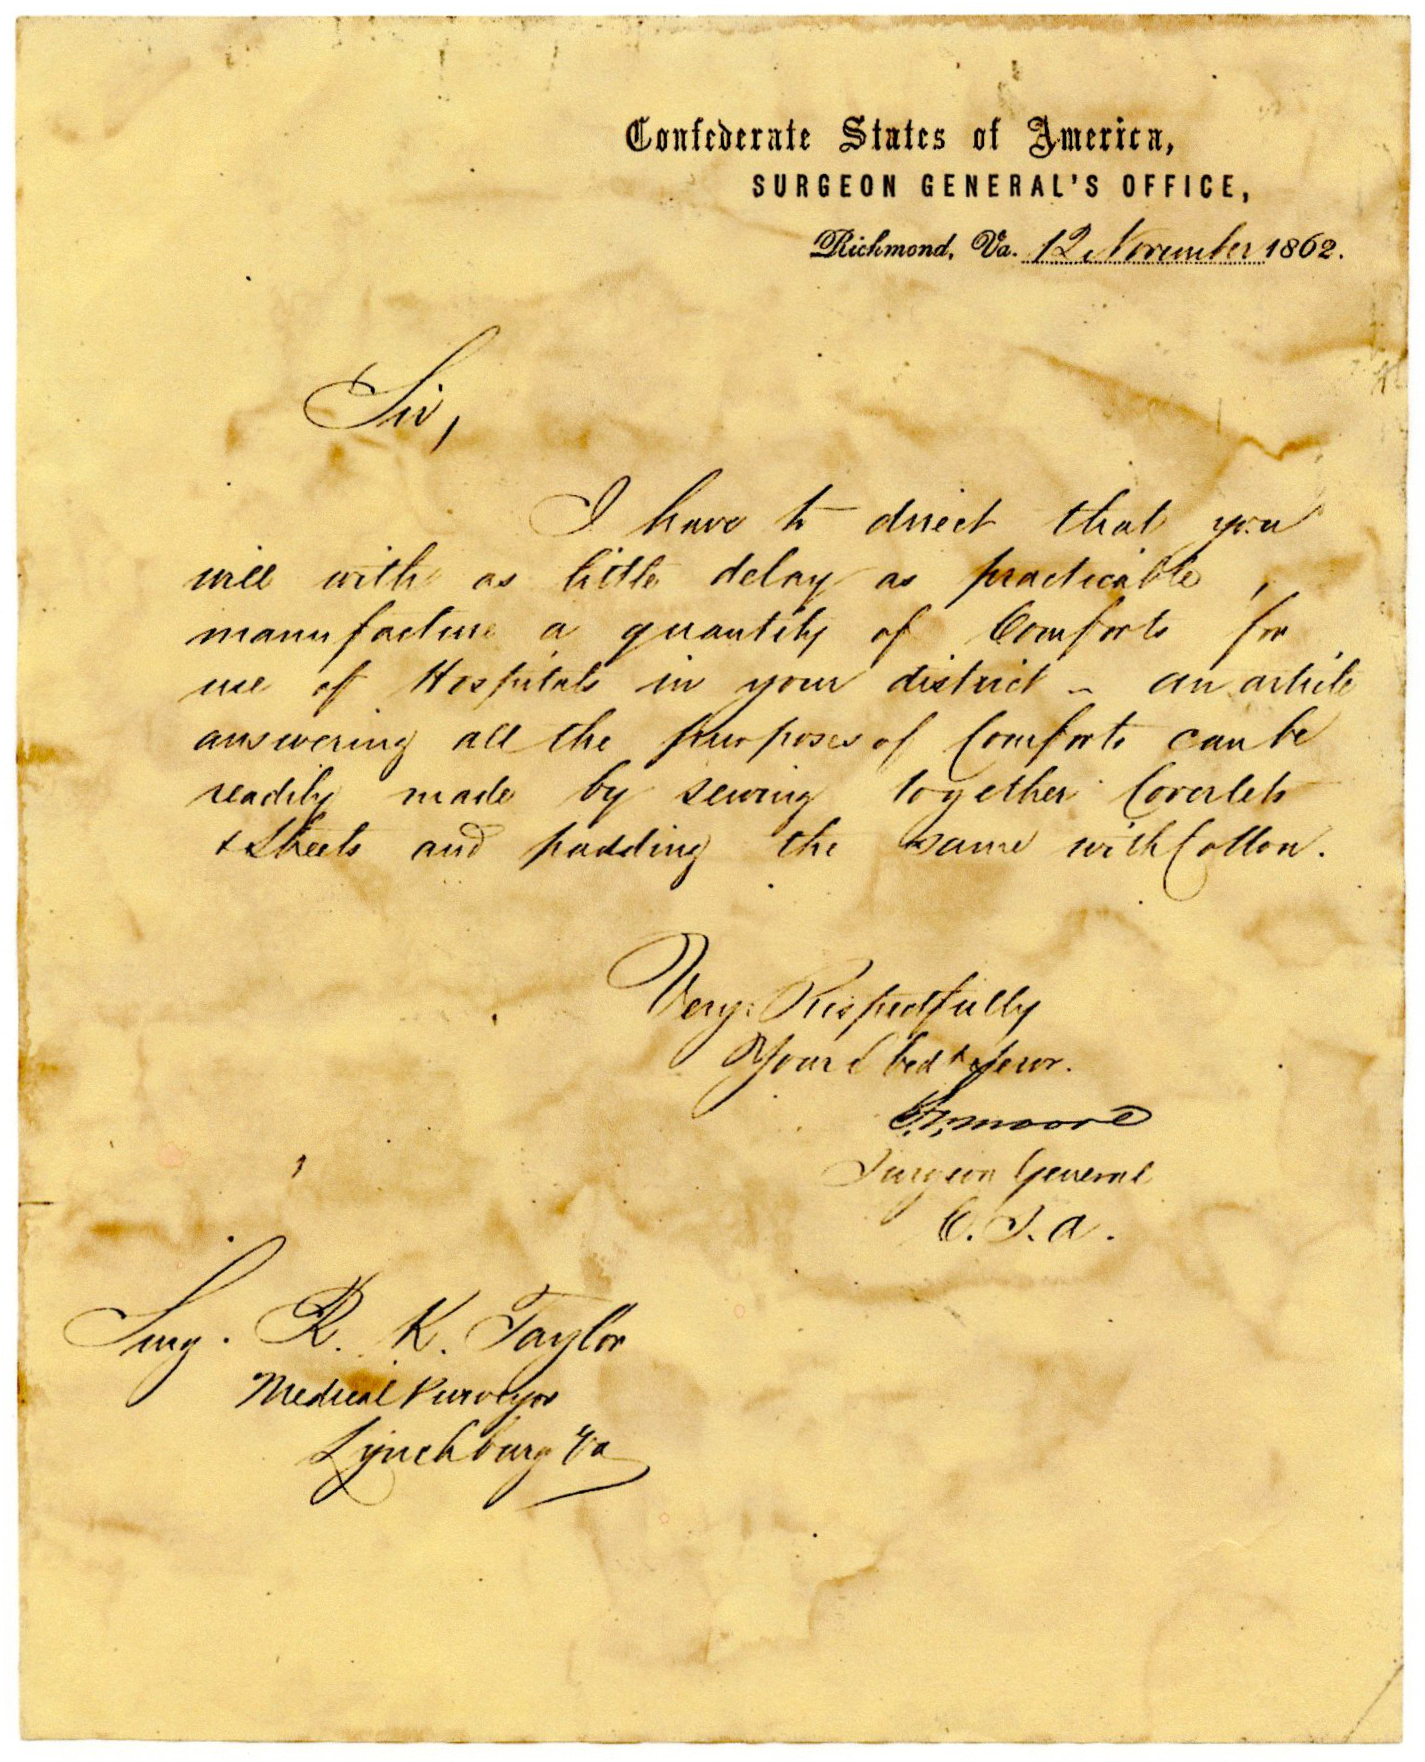 Confederate States of America,
SURGEON GENERAL'S OFFICE,
Richmond, Va. 12 November 1862.
Sir,
I have to direct that you
will with as little delay as practicable,
manufacture a quantity of Comforts for
use of Hospitals in your district - an article
answering all the purposes of Comforts can be
readily made by sewing together Coverlets
& Sheets and padding the same with Cotton.
Very Respectfully
Your Obedt Serv.
S.P. Moore
Surgeon General
C.S.A.
Surg. R. K. Taylor
Medical Purveyor
Lynchburg Va